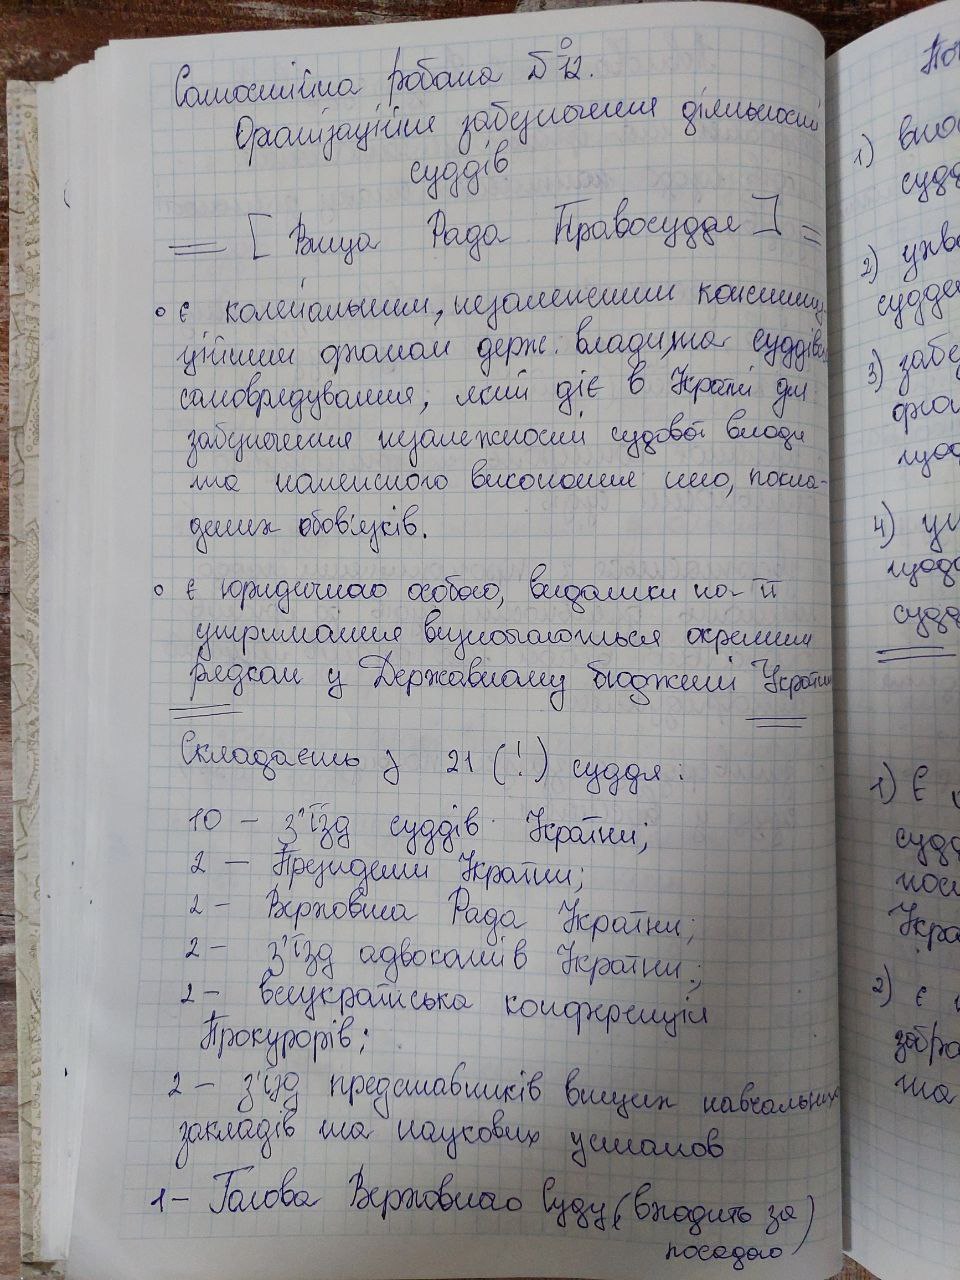 Самостійна робота №12.
Організаційне забезпечення діяльності
суддів
[Вища Рада Правосуддя] =
є колегіальним, незалежним конститу-
ційним органом держ. влади, та суддівс.
самоврядування, який діє в Україні для
забезпечення незалежності судової влади
та належного виконання нею, покла-
дених обов'язків.
є юридичною особою, видатки на її
утримання визначаються окремим
рядком у Державному бюджеті України
Складаєть з 21 (!) суддя:
10 – з'їзд суддів України;
2 – Президент України;
2 – Верховна Рада України;
2 – з'їзд адвокатів України;
2 – всеукраїнська конференція
Прокурорів;
2 – з'їзд представників вищих навчальних
закладів та наукових установ
1 – Голова Верховного Суду (входить за
посадою)
1)
суддів
2) ухва
3) забе
щод
4)
щодо
1) Є
Укра
2) є
та